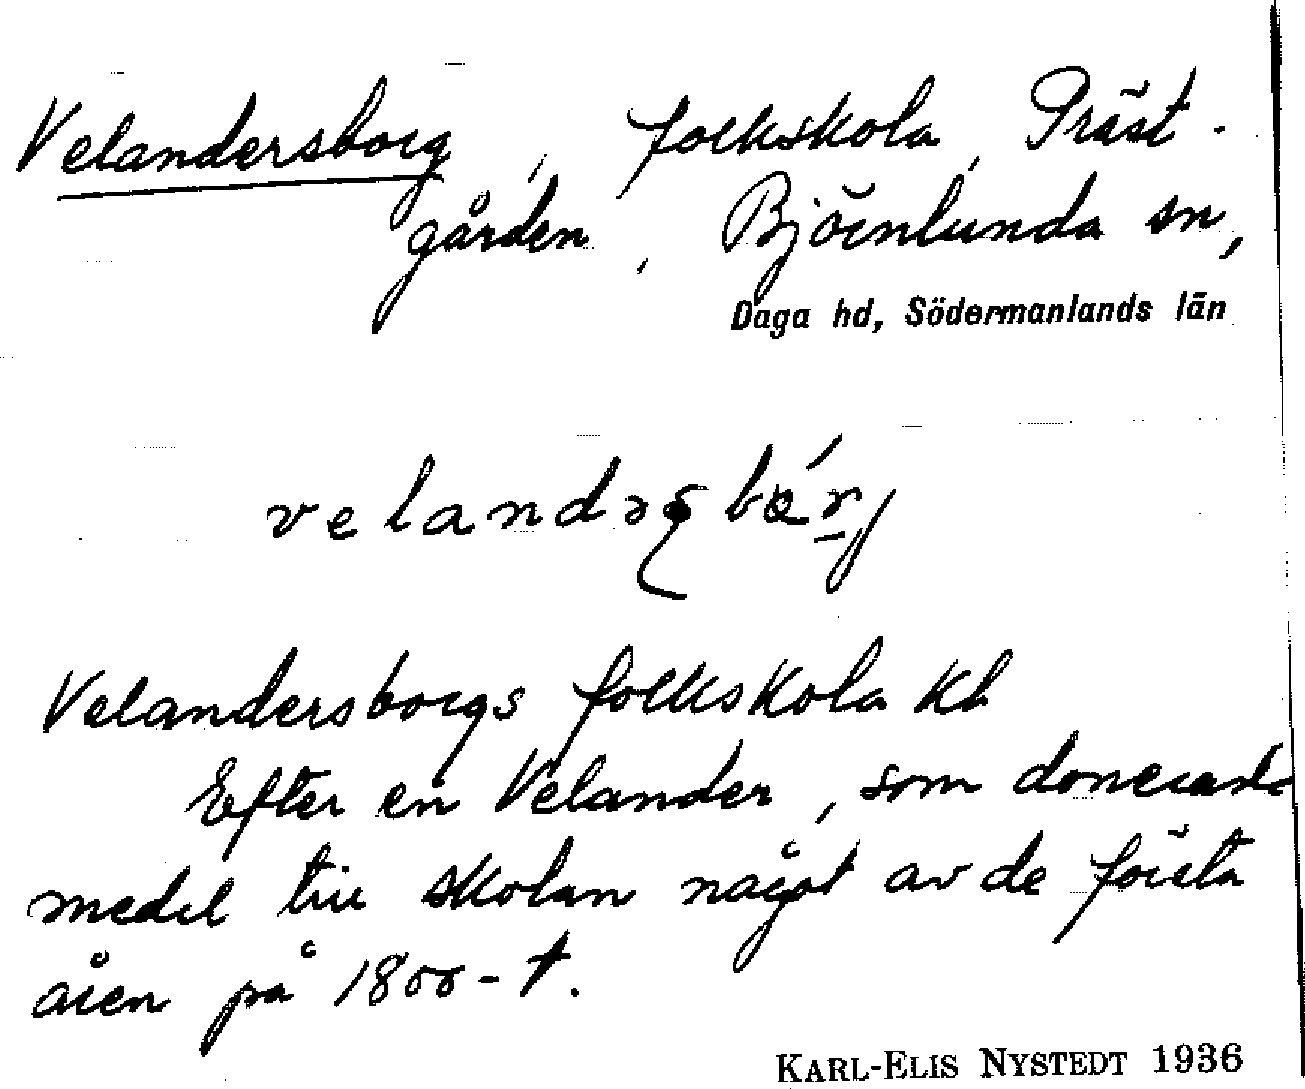 Velandersborg, folkskola, Präst-
gården, Björnlunda sn,
Daga hd, Södermanlands län
Velandersborgs folkskola kb
Efter en Velander, som donerade
medel till skolan något av de första
åren på 1800-t.
KARL-ELIS NYSTEDT 1936